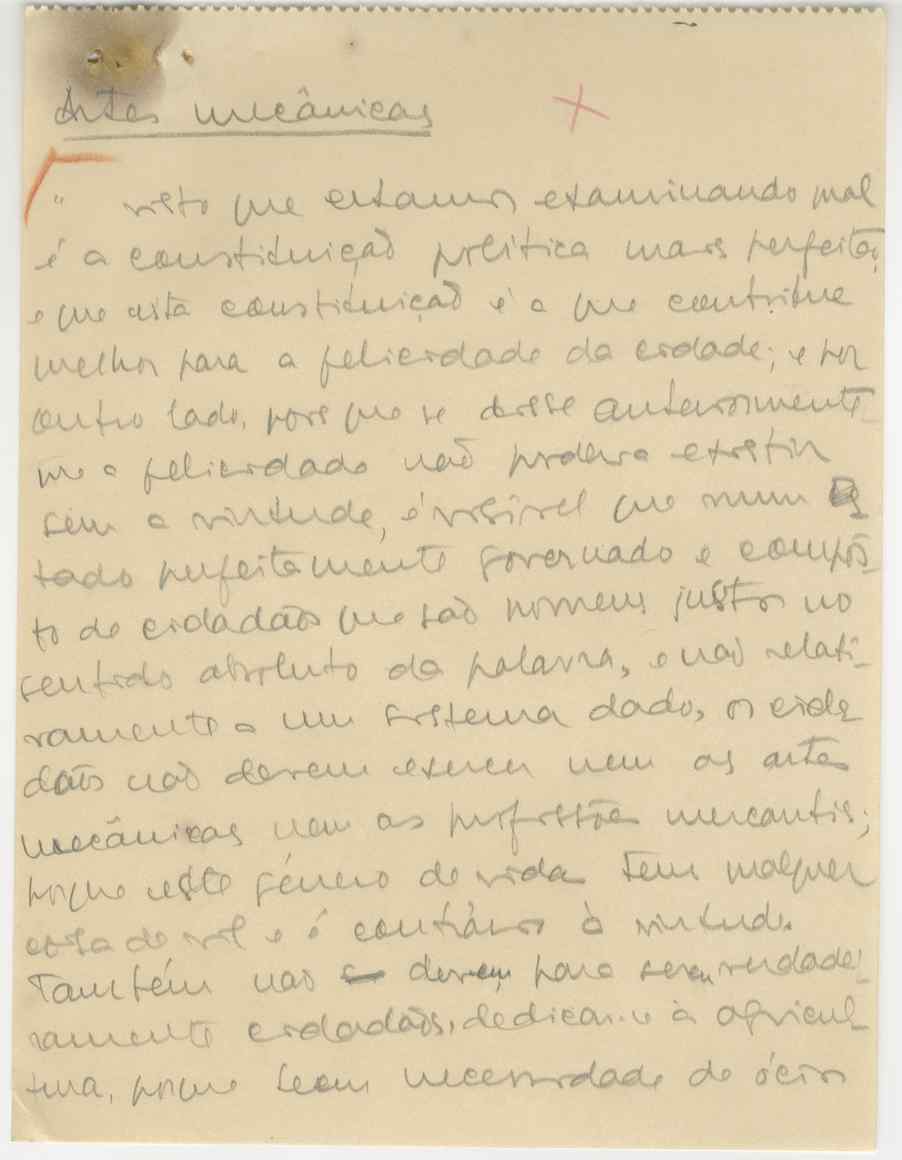 Artes mecânicas
" visto que estamos examinando qual
é a constituição política mais perfeita,
e que esta constituição é a que contribue
melhor para a felicidade da cidade; e por
outro lado, pois que se disse anteriormente
que a felicidade não poderia existir
sem a virtude, é visível que num Es
tado perfeitamente governado e compos-
to de cidadãos que são homens justos no
sentido absoluto da palavra, e não relati-
vamente a um sistema dado, os cida
dãos não devem exercer nem as artes
mecânicas nem as profissões mercantis;
porque este género de vida tem qualquer
coisa de vil e é contrário à virtude.
Também não devem para serem verdadei-
ramente cidadãos, dedicar-se à agricul-
tura, porque teem necessidade de ócios